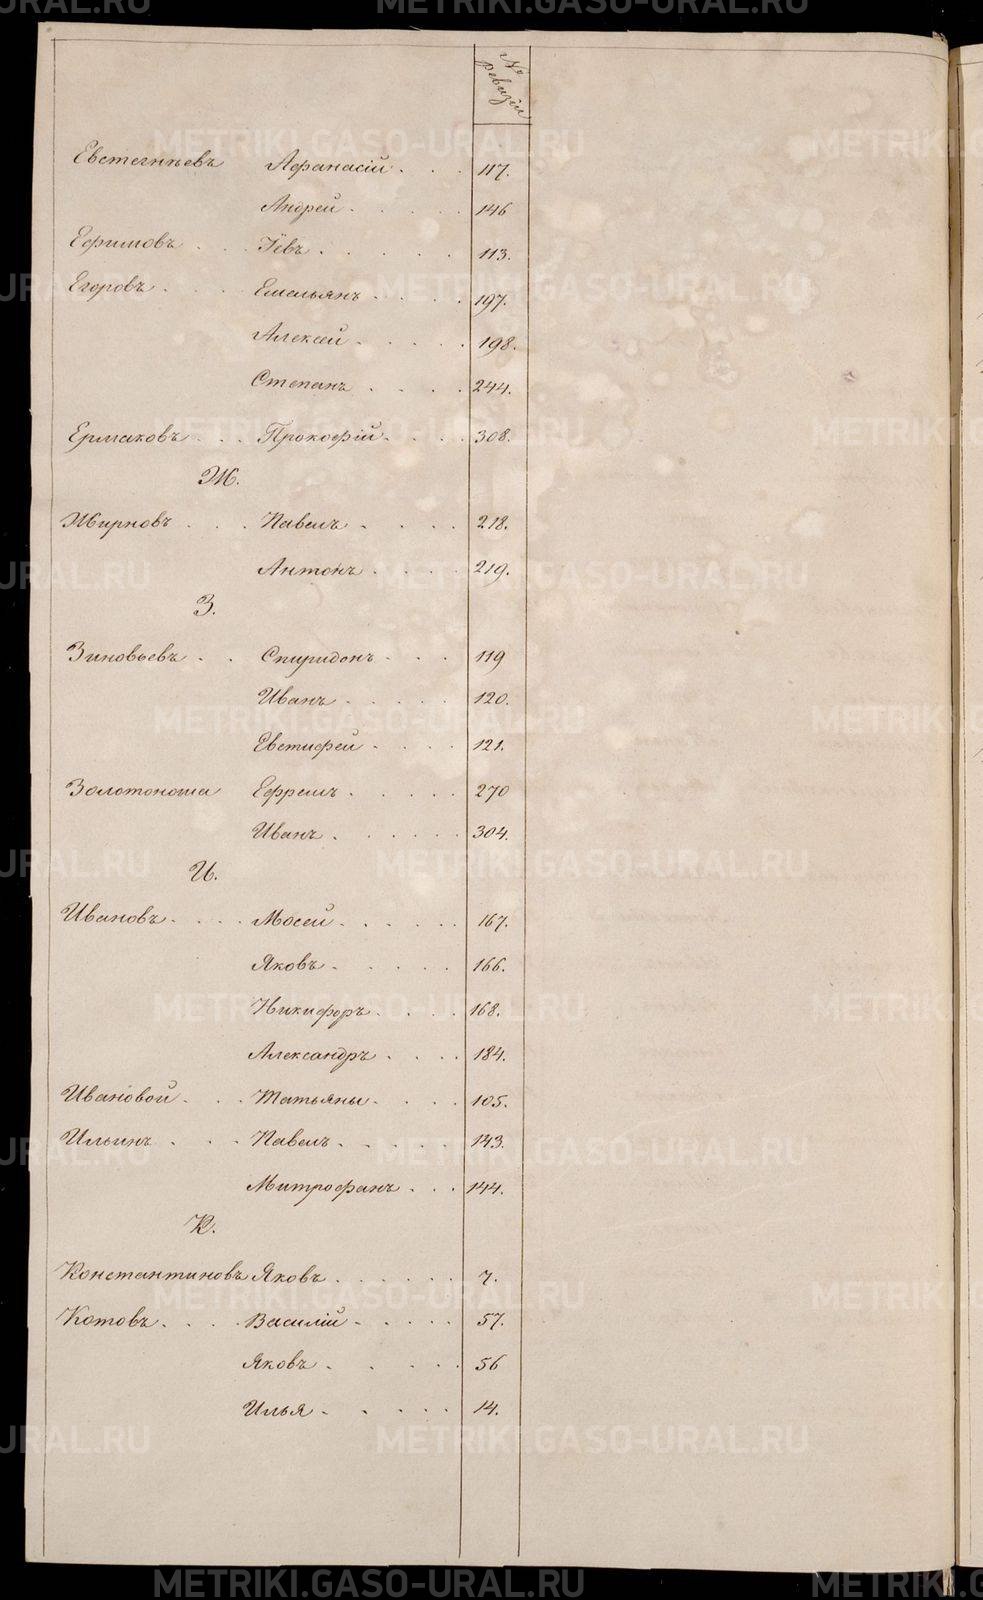 №
ревизіи
Евстегнѣевъ Афанасій . . . 117.
Андрей . . . . . 146
Ефимовъ . . . Іевъ . . . . . 113.
Егоровъ . . . Емельянъ . . . . 197.
Алексей . . . . . 198.
Степанъ . . . . 244.
Ермаковъ . . . Прокофій . . . . 308.
Ж.
Жирновъ . . . Павелъ . . . . 218.
Антонъ . . . . 219.
З.
Зиновьевъ . . Спиридонъ . . . 119
Иванъ . . . . . 120.
Евстифей . . . . 121.
Золотоноша Ефремъ . . . . . 270
Иванъ . . . . . 304.
И.
Ивановъ . . . . Мосей . . . . . . 167.
Яковъ . . . . . 166.
Никифоръ . . . . 168.
Александръ . . . . 184.
Ивановой . . . Татьяны . . . . 105.
Ильинъ . . . Павелъ . . . . . 143.
Митрофанъ . . . 144.
К.
Константиновъ Яковъ . . . . . . 7.
Котовъ . . . . Василій . . . . . 57.
Яковъ . . . . . 56
Илья . . . . . 14.